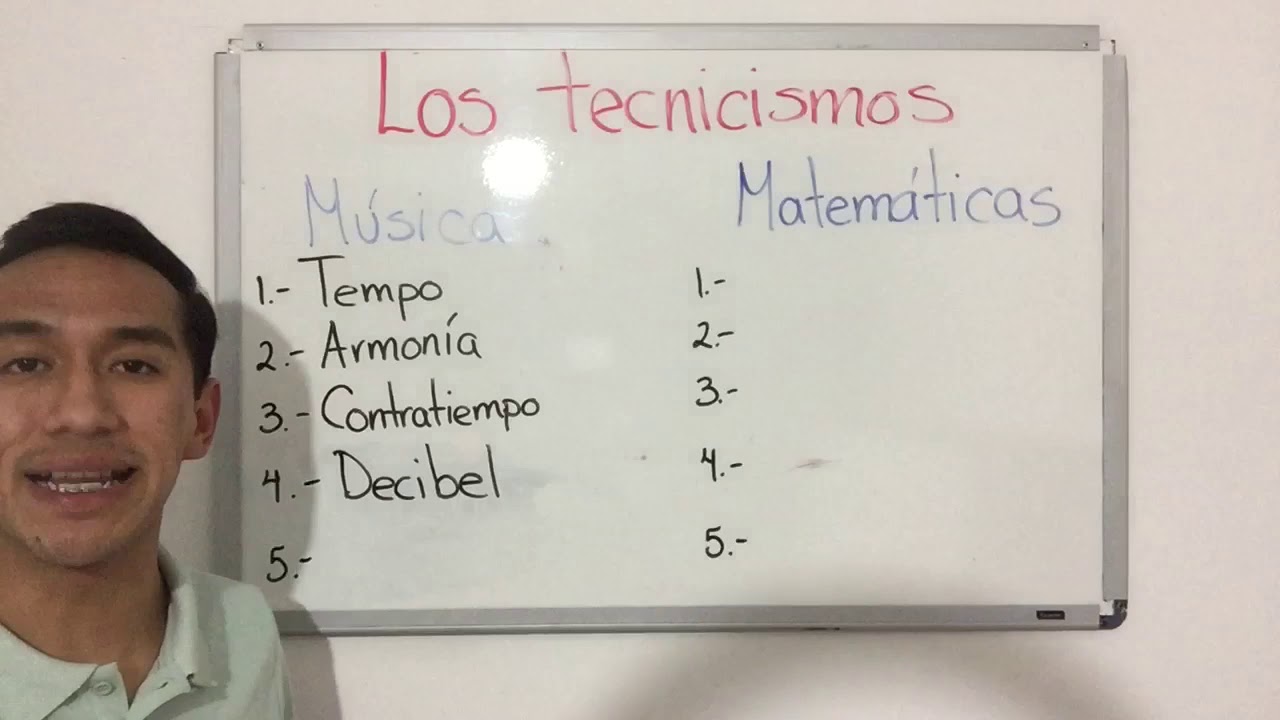 Los tecnicismos
Música
1.- Tempo
2.- Armonía
3.- Contratiempo
4.- Decibel
5.-
Matemáticas
1.-
2.-
3.-
4.-
5.-